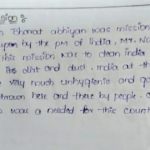 Bharat abhiyan was mission
upon by the pm of India, Mr. Na
this mission was to clean India
the dirt and dust. India at th
very much unhygienic and ga
thrown here and there by people.
was a needed for this count